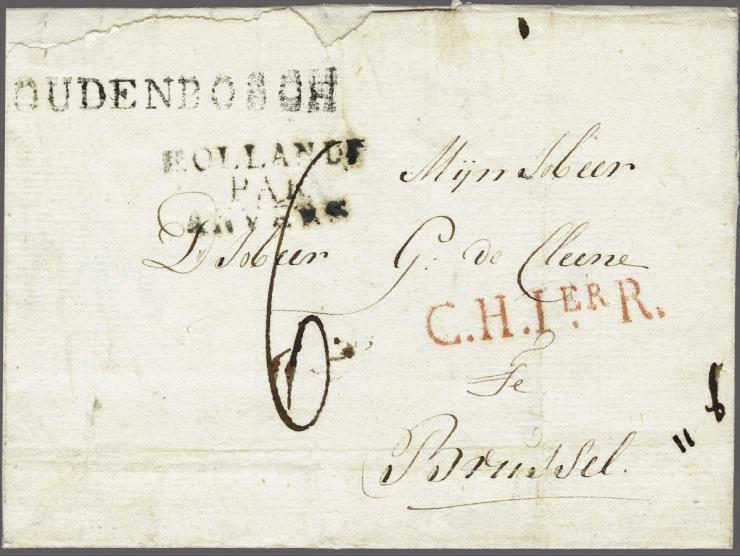 OUDENBOSCH
HOLLANDE
PAR
ANVERS
Mijn Heer
D Heer G. de Cleene
6
C.H.1ER R.
Te
Brussel.